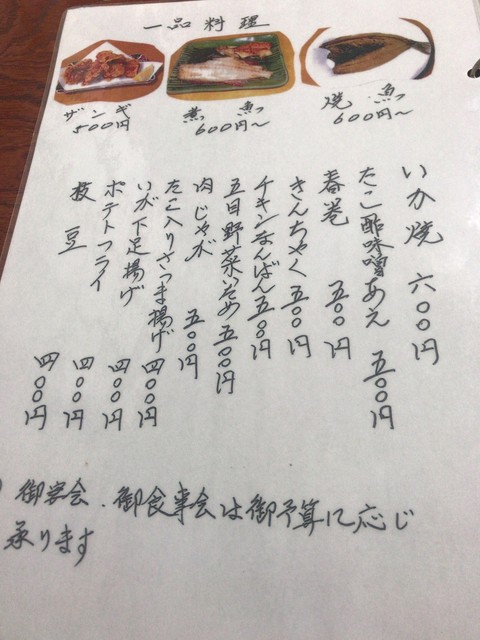 一品料理
ザンギ
500円
煮魚
600円〜
焼魚
600円〜
いか焼 六〇〇円
たこ酢味噌あえ 五〇〇円
春巻 五〇〇円
きんちゃく 五〇〇円
チキンなんばん 五〇〇円
五目野菜いため 五〇〇円
肉じゃが 五〇〇円
たこ入りさつま揚げ 四〇〇円
いが下足揚げ 四〇〇円
ポテトフライ 四〇〇円
枝豆 四〇〇円
御宴会、御食事会は御予算に応じ
承ります